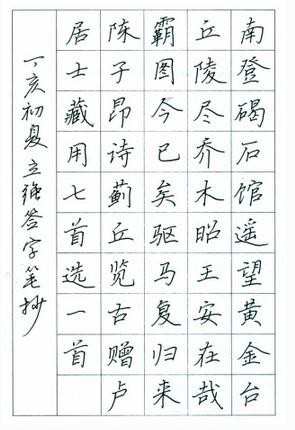 南登碣石馆遥望黄金台
丘陵尽乔木昭王安在哉
霸图今已矣驱马复归来
陈子昂诗蓟丘览古赠卢
居士藏用七首选一首
丁亥初夏立强签字笔抄